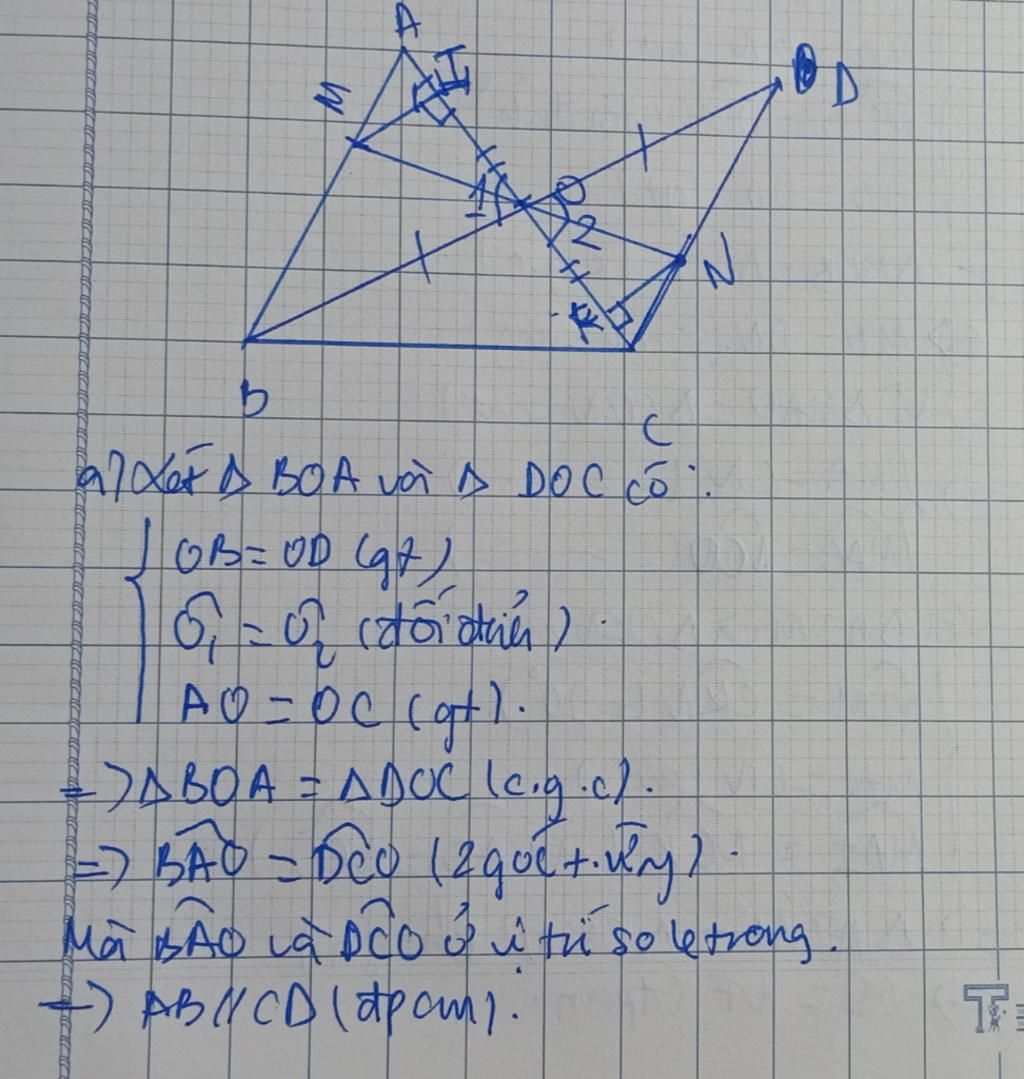 A
I
M
D
1
O
2
N
K
B
C
a) Xét Δ BOA và Δ DOC có:
OB = OD (gt)
Ô₁ = Ô₂ (đối đỉnh).
AO = OC (gt).
=> ΔBOA = ΔDOC (c.g.c).
=> BÂO = DĈO (2 góc t.ứng).
Mà BÂO và DĈO ở vị trí so le trong.
=> AB//CD (đpcm).